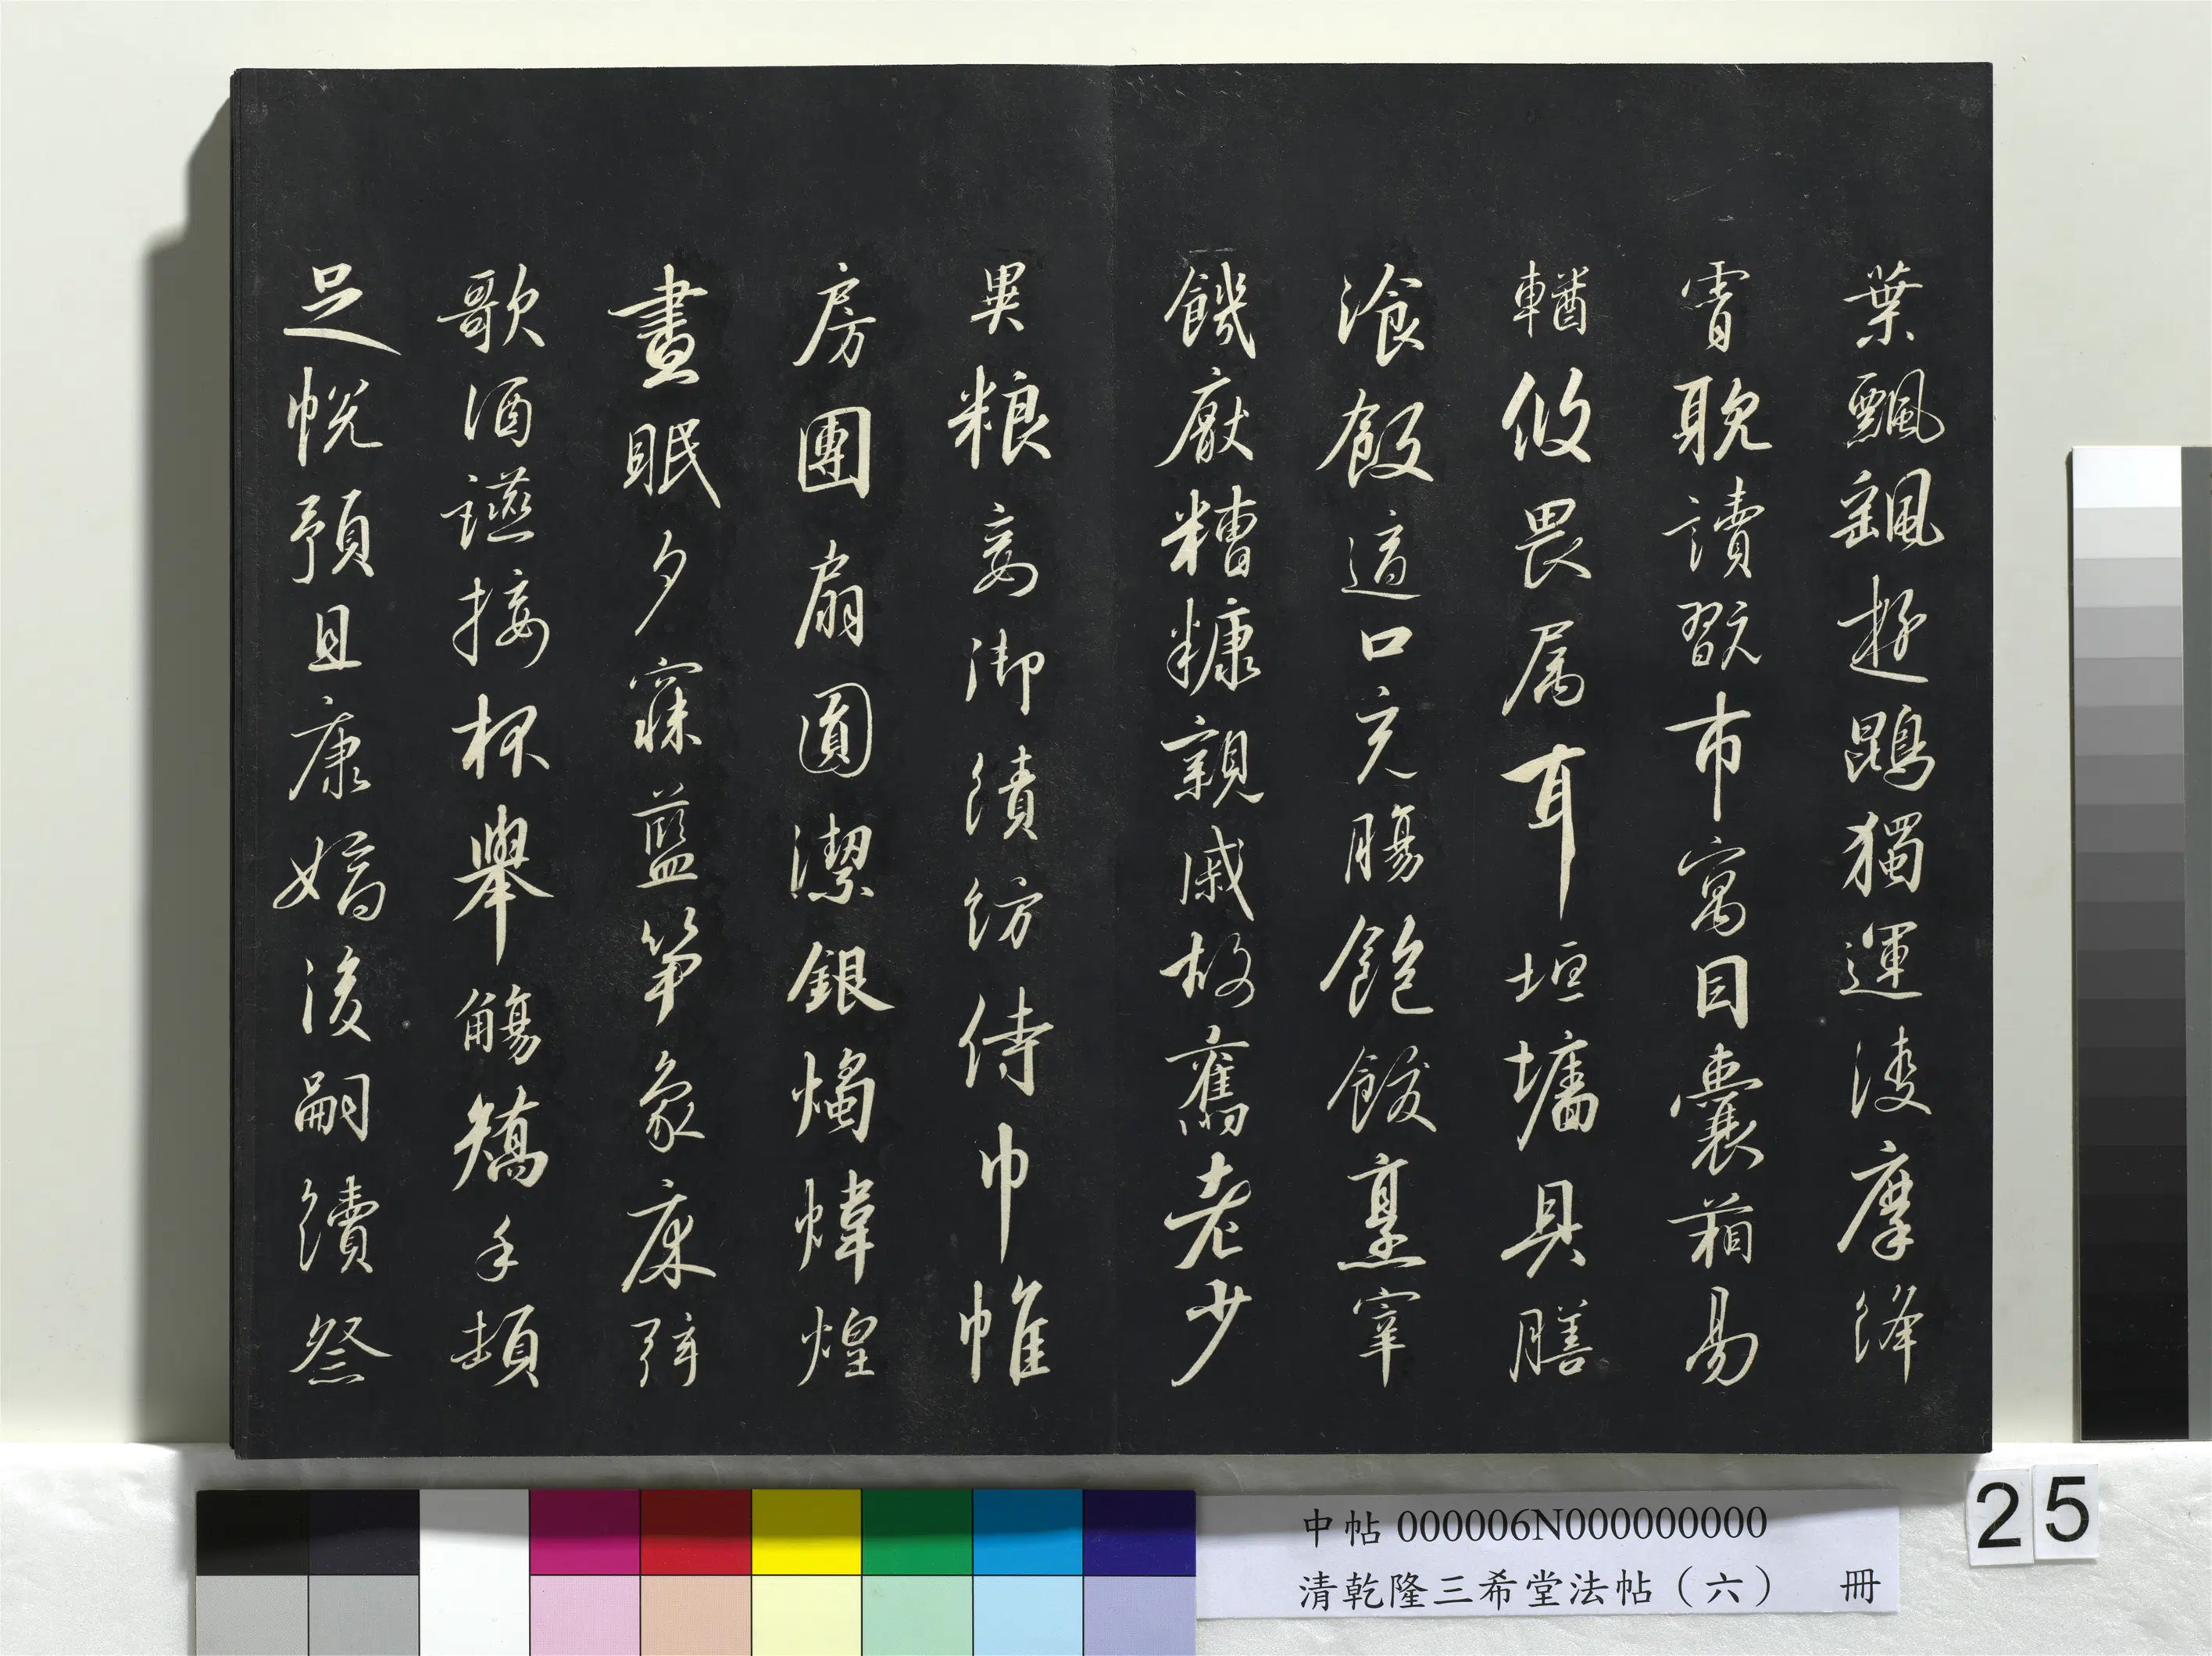 葉飄颻遊鵾獨運淩摩絳
霄耽讀翫市寓目囊葙易
輶攸畏属耳垣墻具膳
飡飯適口充腸飽飫烹宰
饑厭糟糠親戚故舊老少
異粮妾御績紡侍巾帷
房團扇圓潔銀燭煒煌
晝眠夕寐藍笋象床弦
歌酒讌接杯舉觴矯手頓
足悅預且康嫡後嗣續祭
中帖 000006N000000000
清乾隆三希堂法帖（六） 冊
25